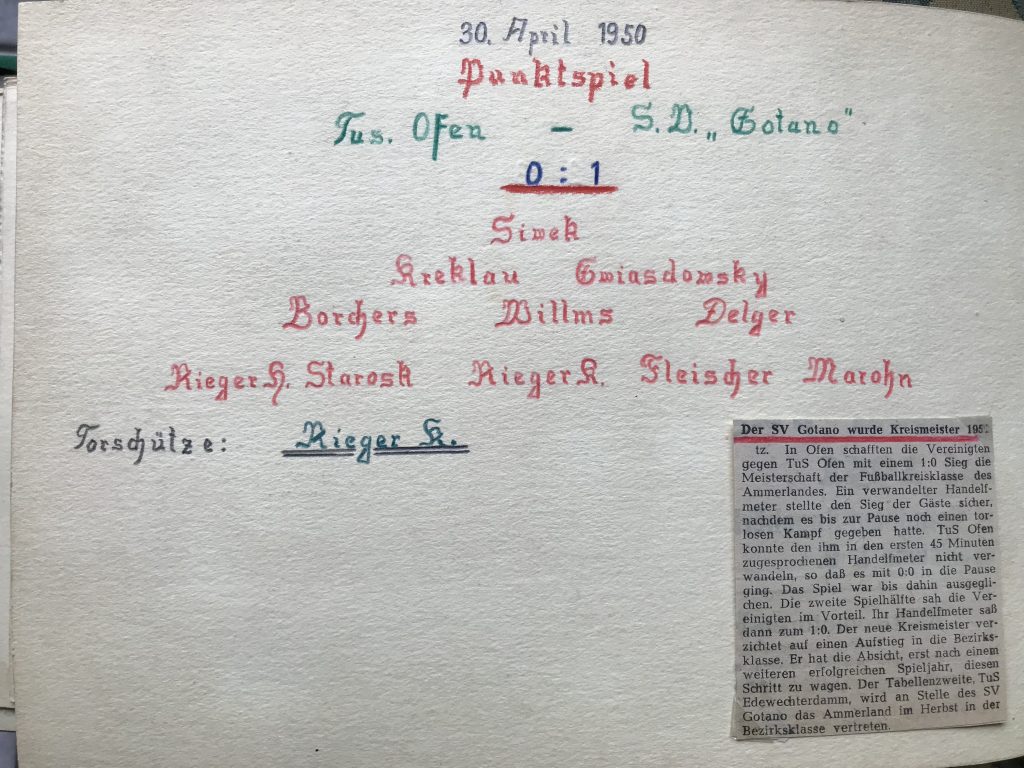 30. April 1950
Punktspiel
Tus. Ofen – S.V. „Gotano“
0 : 1
Siwek
Kreklau Gwiasdowsky
Borchers Willms Delger
Rieger H. Starosk Rieger K. Fleischer Marohn
Torschütze: Rieger K.
Der SV Gotano wurde Kreismeister 195
tz. In Ofen schafften die Vereinigten
gegen TuS Ofen mit einem 1:0 Sieg die
Meisterschaft der Fußballkreisklasse des
Ammerlandes. Ein verwandelter Handelf-
meter stellte den Sieg der Gäste sicher,
nachdem es bis zur Pause noch einen tor-
losen Kampf gegeben hatte. TuS Ofen
konnte den ihm in den ersten 45 Minuten
zugesprochenen Handelfmeter nicht ver-
wandeln, so daß es mit 0:0 in die Pause
ging. Das Spiel war bis dahin ausgegli-
chen. Die zweite Spielhälfte sah die Ver-
einigten im Vorteil. Ihr Handelfmeter saß
dann zum 1:0. Der neue Kreismeister ver-
zichtet auf einen Aufstieg in die Bezirks-
klasse. Er hat die Absicht, erst nach einem
weiteren erfolgreichen Spieljahr, diesen
Schritt zu wagen. Der Tabellenzweite, TuS
Edewechterdamm, wird an Stelle des SV
Gotano das Ammerland im Herbst in der
Bezirksklasse vertreten.